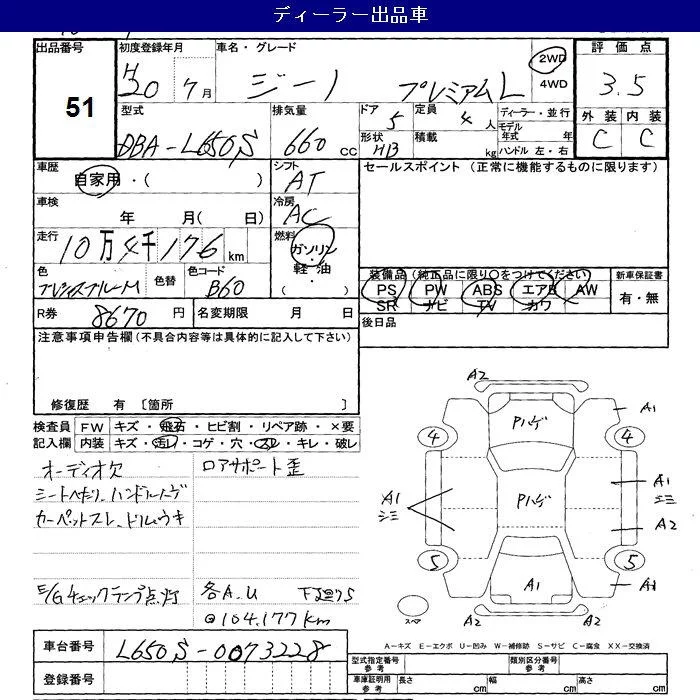 ディーラー出品車
出品番号 51
初度登録年月 H20年 7月
車名・グレード ジーノ プレミアムL
2WD
4WD
評価点 3.5
外装 内装
C C
型式 DBA-L650S
排気量 660 cc
ドア 5
定員 4人
形状 HB
積載 kg
ディーラー・並行
モデル年式 年
ハンドル 左・右
車歴 自家用・( )
シフト AT
セールスポイント (正常に機能するものに限ります)
車検 年 月( 日)
冷房 AC
走行 10万4千176 km
燃料 ガソリン・軽油・( )
色
色替
色コード B60
装備品(純正品に限り○をつけてください)
新車保証書
PS PW ABS エアB AW
SR ナビ TV カワ
有・無
R券 8670円
名変期限 月 日
後日品
注意事項申告欄(不具合内容等は具体的に記入して下さい)
修復歴 有 〔箇所 〕
検査員 FW キズ・飛石・ヒビ割・リペア跡・×要
記入欄 内装 キズ・汚レ・コゲ・穴・スレ・キレ・破レ
オーディオ欠 ロアサポート歪
シートヘタリ、ハンドルハゲ
カーペットスレ、ドリムウキ
E/Gチェックランプ点灯 各A.U 下廻りS
@104.177km
A2
Pハゲ
A1
4
4
A1
シミ
Pハゲ
A1
エミ
A2
5
5
A1
A1
スペア
A2
A-キズ E-エクボ U-凹み W-補修跡 S-サビ C-腐食 XX-交換済
車台番号 L650S-0073228
登録番号
型式指定番号 参考
類別区分番号 参考
車庫証明用 参考
長さ cm
幅 cm
高さ cm